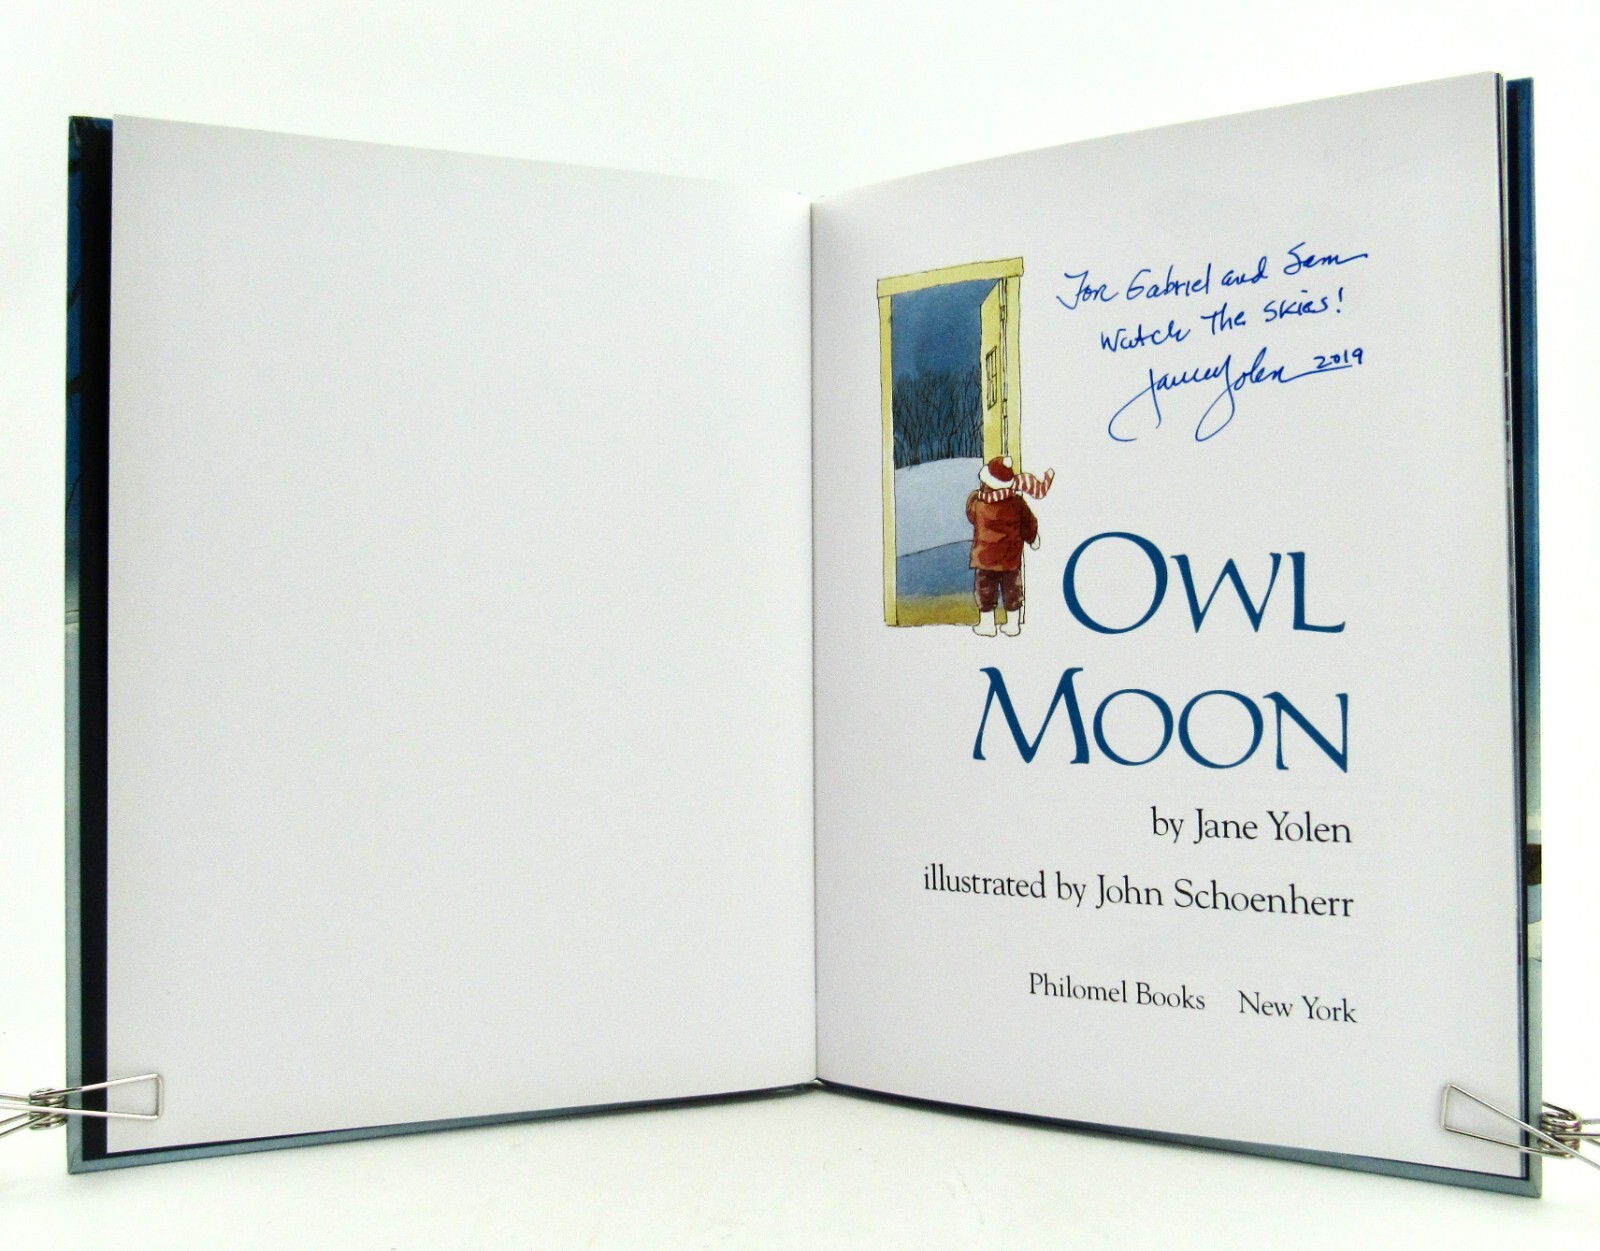 For Gabriel and Sam
Watch The Skies!
Jane Yolen 2019
OWL
MOON
by Jane Yolen
illustrated by John Schoenherr
Philomel Books New York